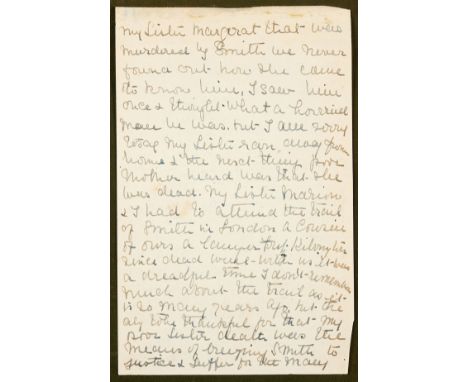 My Sister Margrat that was
murdered by Smith we never
found out how she came
to know him, I saw him
once & thought what a horried
man he was. but I am sorry
to say my Sister ran away from
home & the next thing poor
Mother heard was that she
was dead. My Sister Marion
& I had to attend the trail
of Smith in London a Cousin
of ours a Lawyer
since dead went with us it was
a dreadful time I dont remember
much about the trail as it
is so many years ago but the
only to be thankful for that my
poor sister death was the
means of bringing Smith to
justice & suffer for the many